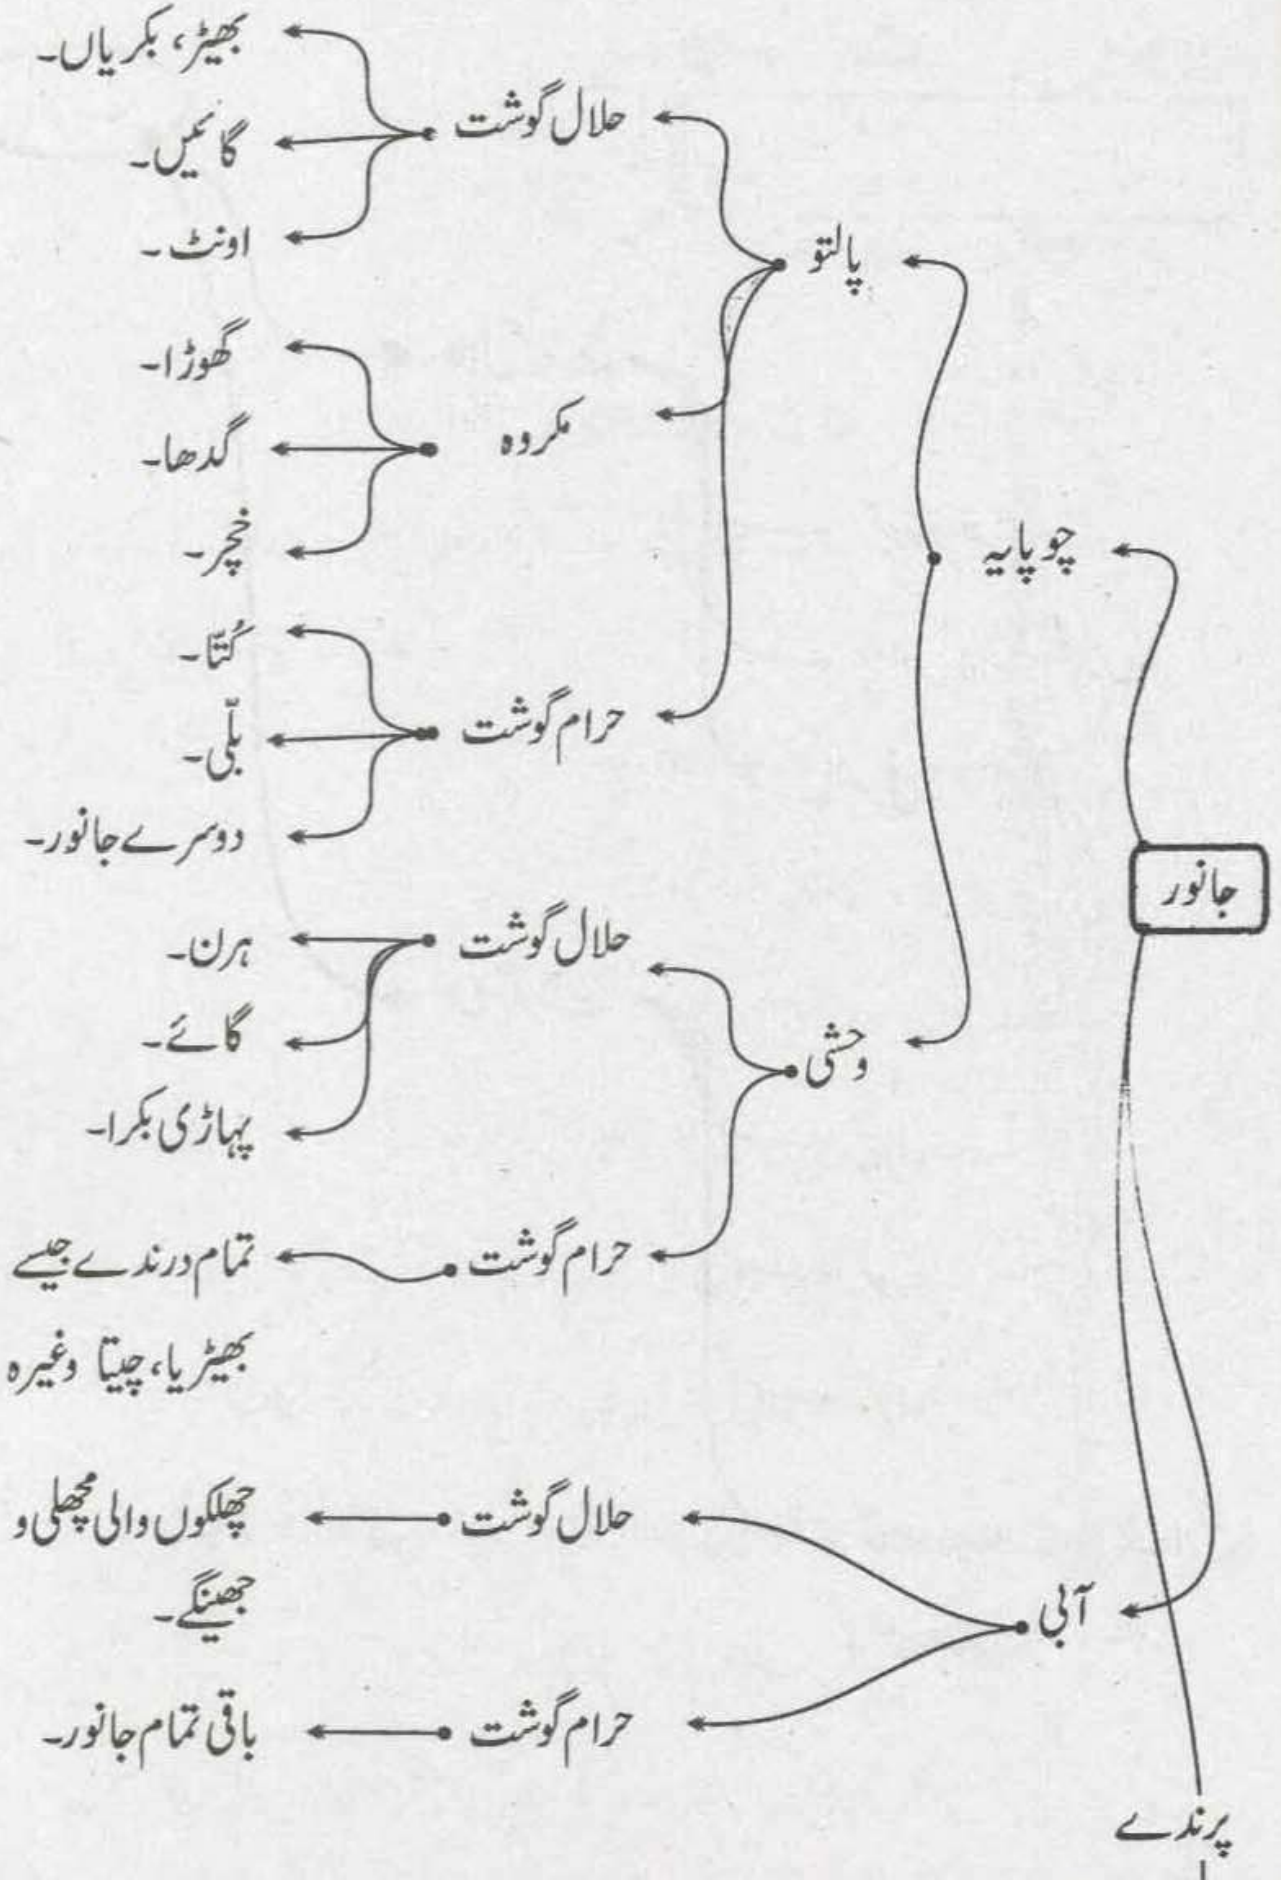 جانور
چوپایہ
پالتو
حلال گوشت
بھیڑ، بکریاں۔
گائیں۔
اونٹ۔
مکروہ
گھوڑا۔
گدھا۔
خچر۔
حرام گوشت
کُتّا۔
بلّی۔
دوسرے جانور۔
وحشی
حلال گوشت
ہرن۔
گائے۔
پہاڑی بکرا۔
حرام گوشت
تمام درندے جیسے
بھیڑیا، چیتا وغیرہ
آبی
حلال گوشت
چھلکوں والی مچھلی و
جھینگے۔
حرام گوشت
باقی تمام جانور۔
پرندے